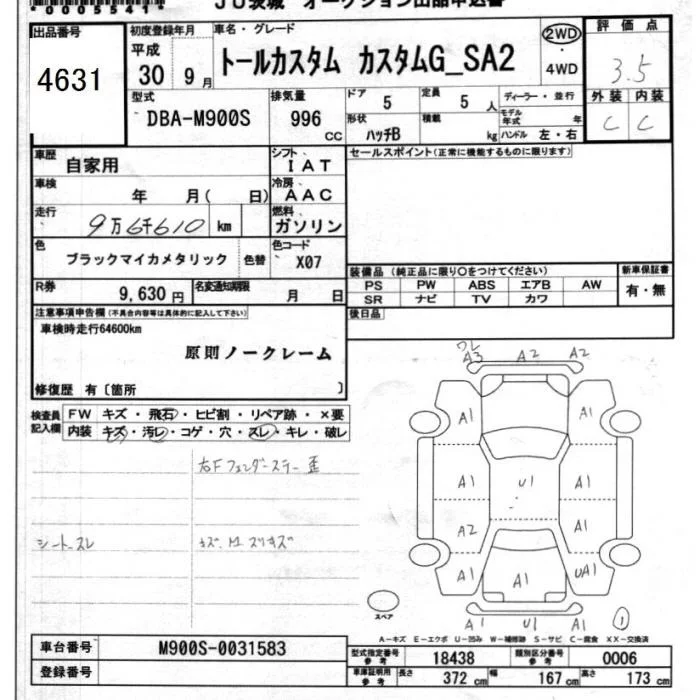 *0005541* JU茨城 オークション出品申込書
出品番号
4631
初度登録年月
平成
30 9月
車名・グレード
トールカスタム カスタムG_SA2
2WD
・
4WD
評価点
3.5
外装 内装
C C
型式
DBA-M900S
排気量
996 CC
ドア 5
定員 5 人
ディーラー・並行
形状 ハッチB
積載 kg
モデル年式 年
ハンドル 左・右
車歴
自家用
シフト
IAT
セールスポイント(正常に機能するものに限ります)
車検
年 月( 日)
冷房
AAC
走行
9万6千610 km
燃料
ガソリン
色
ブラックマイカメタリック
色替
色コード
X07
装備品(純正品に限り○をつけてください)
PS PW ABS エアB AW
SR ナビ TV カワ
新車保証書
有・無
R券
9,630円
名変通知期限
月 日
後日品
注意事項申告欄(不具合内容等は具体的に記入して下さい)
車検時走行64600km
原則ノークレーム
修復歴 有〔箇所 〕
検査員記入欄
FW キズ・飛石・ヒビ割・リペア跡・×要
内装 キズ・汚レ・コゲ・穴・スレ・キレ・破レ
右Fフェンダーステー歪
シートスレ
ワレ
A3 A2 A2
A1 A1
A1 U1 A1
A2 A1
A1 A1 UA1
A1 U1 A1
①
スペア
A-キズ E-エクボ U-凹み W-補修跡 S-サビ C-腐食 XX-交換済
車台番号
M900S-0031583
登録番号
型式指定番号参考
18438
類別区分番号参考
0006
車庫証明用参考
長さ 372 cm
幅 167 cm
高さ 173 cm